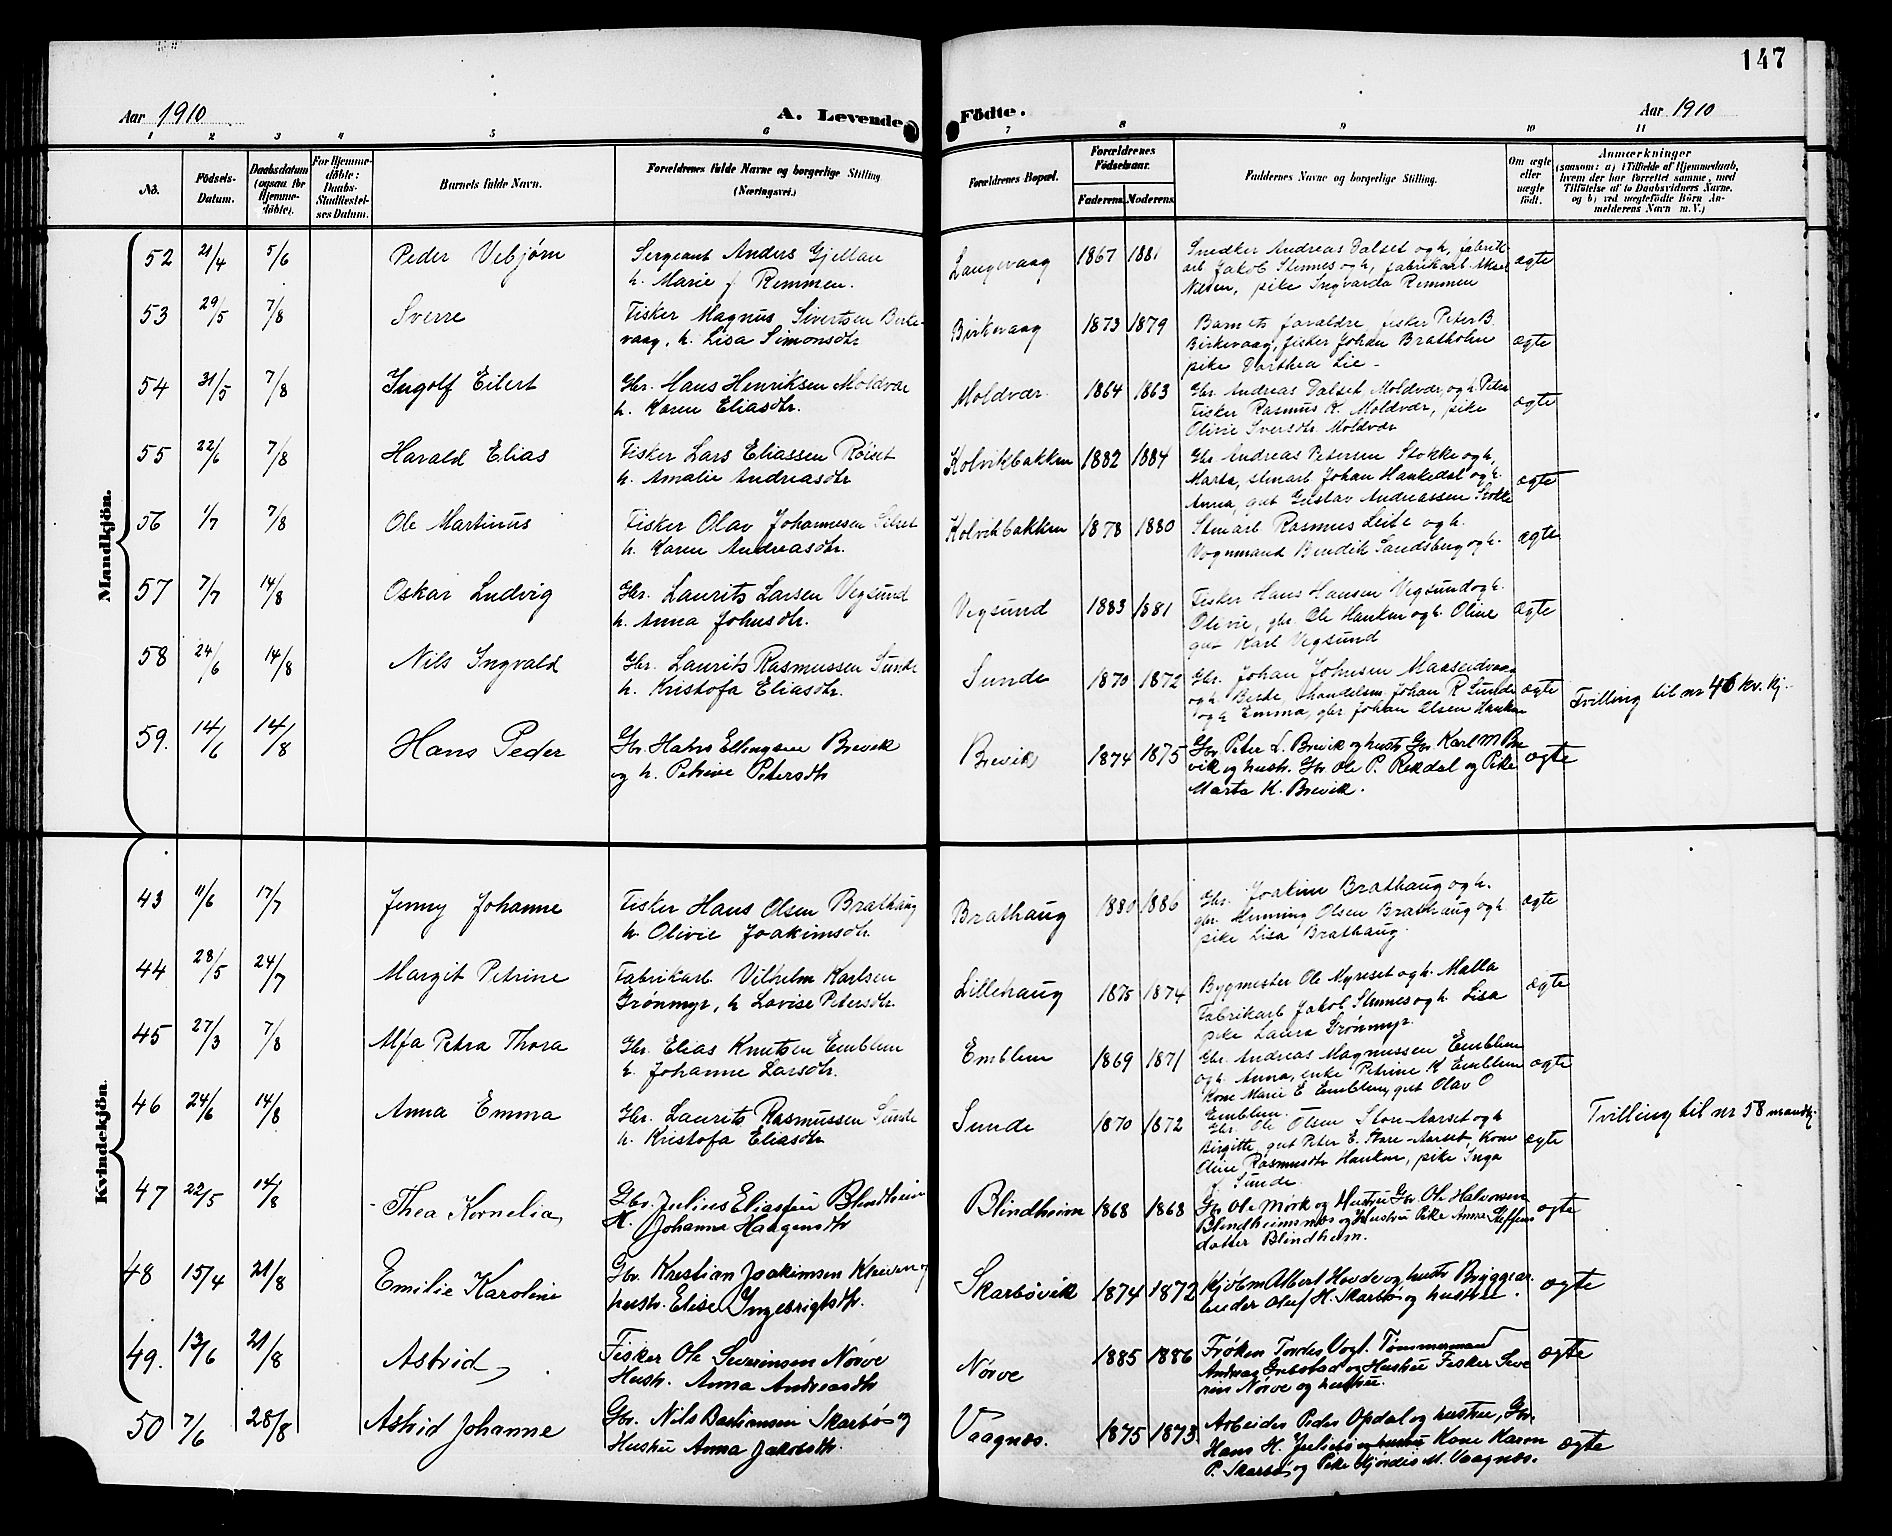 147
Aar 1910
A. Levende Fødte.
Aar 1910
1 2 3 4 5 6 7 8 9 10 11
No.
Fødsels-Datum.
Daabsdatum (ogsaa for Hjemme-døbte).
For Hjemme-døbte: Daabs-Stadfæstel-ses Datum.
Barnets fulde Navn.
Forældrenes fulde Navne og borgerlige Stilling (Næringsvei.)
Forældrenes Bopæl.
Forældrenes Fødselsaar.
Faderens. Moderens.
Faddernes Navne og borgerlige Stilling.
Om ægte eller uægte født.
Anmærkninger
(saasom: a) i Tilfælde af Hjemmedaab, hvem der har forrettet samme, med Tilføielse af to Daabsvidners Navne, og b) ved uægtefødte Børn An-melderens Navn m. V.)
Mandkjøn.
52 21/4 5/6 Peder Vebjørn Sergeant Anders Gjellan Langevaag 1867 1881 Snedker Andreas Dalset og h, fabrik- ægte
h. Marie f Remmen. arb Jakob Slinnes og h, fabrikarb Aksel
Nilsen, pike Ingvarda Remmen
53 29/5 7/8 Sverre Fisker Magnus Sivertsen Birke- Birkevaag 1873 1879 Barnets forældre, fisker Peter B. ægte
vaag, h. Lisa Simonsdtr Birkevaag, fisker Johan Bratholm
pike Dorthea Lie -
54 31/5 7/8 Ingolf Eilert Gbr. Hans Henriksen Moldvær Moldvær. 1864 1863 Gbr Andreas Dalset Moldvær og h. Petra ægte
h. Karen Eliasdtr. Fisker Rasmus K. Moldvær, pike
Olivie Iversdtr Moldvær
55 22/6 7/8 Harald Elias Fisker Lars Eliassen Røiset Kolvikbakken 1882 1884 Gbr Andreas Petersen Stokke og h, ægte
h. Amalie Andreasdtr Marta, stenarb Johan Hankedal og h.
Anna, gut Gustav Andreassen Stokke
56 1/7 7/8 Ole Martinus Fisker Olav Johannesen Kolvikbakken 1878 1880 Stenarb Rasmus Leite og h. ægte
h. Karen Andreasdtr. Vognmand Bendik Sandsberg og h.
57 7/7 14/8 Oskar Ludvig Gbr. Laurits Larsen Vegsund Vegsund 1883 1881 Fisker Hans Hansen Vegsund og h. ægte
h. Anna Johnsdtr. Olivie, gbr. Ole Hanken og h. Oline
gut Karl Vegsund
58 24/6 14/8 Nils Ingvald Gbr. Laurits Rasmussen Sunde Sunde 1870 1872 Gbr. Johan Johnsen Maaseidvaag ægte Tvilling til nr 46 kv. kj.
h. Kristofa Eliasdtr. og h. Berte, handelsm. Johan R Sunde
og h Emma, gbr Johan Olsen Hanken
59. 14/6 14/8 Hans Peder Gbr. Hans Ellingsen Brevik Brevik 1874 1875 Gbr Peter L. Brevik og hustr. Gbr Karl M Bre ægte
og h. Petrine Petersdtr vik og hustr. Gbr Ole P. Rekdal og Pike
Marta K. Brevik.
Kvindekjøn.
43 11/6 17/7 Jenny Johanne Fisker Hans Olsen Brathaug Brathaug 1880 1886 Gbr. Joakim Brathaug og h. ægte
h. Olivie Joakimsdtr. gbr. Henning Olsen Brathaug og h.
pike Lisa Brathaug.
44 28/5 24/7 Margit Petrine Fabrikarb. Vilhelm Karlsen Lillehaug 1875 1874 Bygmester Ole Myreset og h. Malla ægte
Grønmyr, h Lovise Petersdtr. Fabrikarb Jakob Slinnes og h. Lisa
pike Laura Grønmyr.
45 27/3 7/8 Alfa Petra Thora Gbr. Elias Knutsen Emblem Emblem 1869 1871 Gbr. Andreas Magnussen Emblem ægte
h. Johanne Larsdtr. og h. Anna, enke Petrine K Emblem
Kone Marie E Emblem, gut Olav O
Emblem.
46 24/6 14/8 Anna Emma Gbr. Laurits Rasmussen Sunde Sunde 1870 1872 Gbr. Ole Olsen Store Aarset og h ægte Tvilling til nr 58 mandkj
h. Kristofa Eliasdtr Birgitte, gut Peter E. Store-Aarset, Kone
Oline Rasmusdtr Hanken, pike Inga
Sunde.
47 22/5 14/8 Thea Kornelia, Gbr. Julius Eliassen Blindheim Blindheim 1868 1868 Gbr Ole Mørk og Hustru Gbr Ole Halvorsen ægte
H. Johanne Haagensdtr Blindheimsnes og Hustru Pike Anna Steffens
datter Blindheim.
48 15/4 21/8 Emilie Karoline Gbr. Kristian Joakimsen Kleiven og Skarbøvik 1874 1872 Kjøbm Albert Hovde og hustr Bryggear- ægte
hustr. Elise Ingebrigtsdtr. beider Oluf H. Skarbø og hustru.
49. 13/6 21/8 Astrid, Fisker Ole Severinsen Nørve Nørve 1885 1886 Frøken Tordes Vogt. Tømmermand ægte
Hustr. Anna Andreasdtr Andreas Grebstad og Hustru Fisker Seve
rin Nørve og hustru.
50 7/6 28/8 Astrid Johanne Gbr. Nils Bastiansen Skarbø og Vaagnes. 1875 1873 Arbeider Peder Opdal og hustru, Gbr. ægte
Hustru Anna Jakobsdtr. Hans H. Julebø og hustru Kone Karen
P. Skarbø og Pike Hjørdis M. Vaagnes.